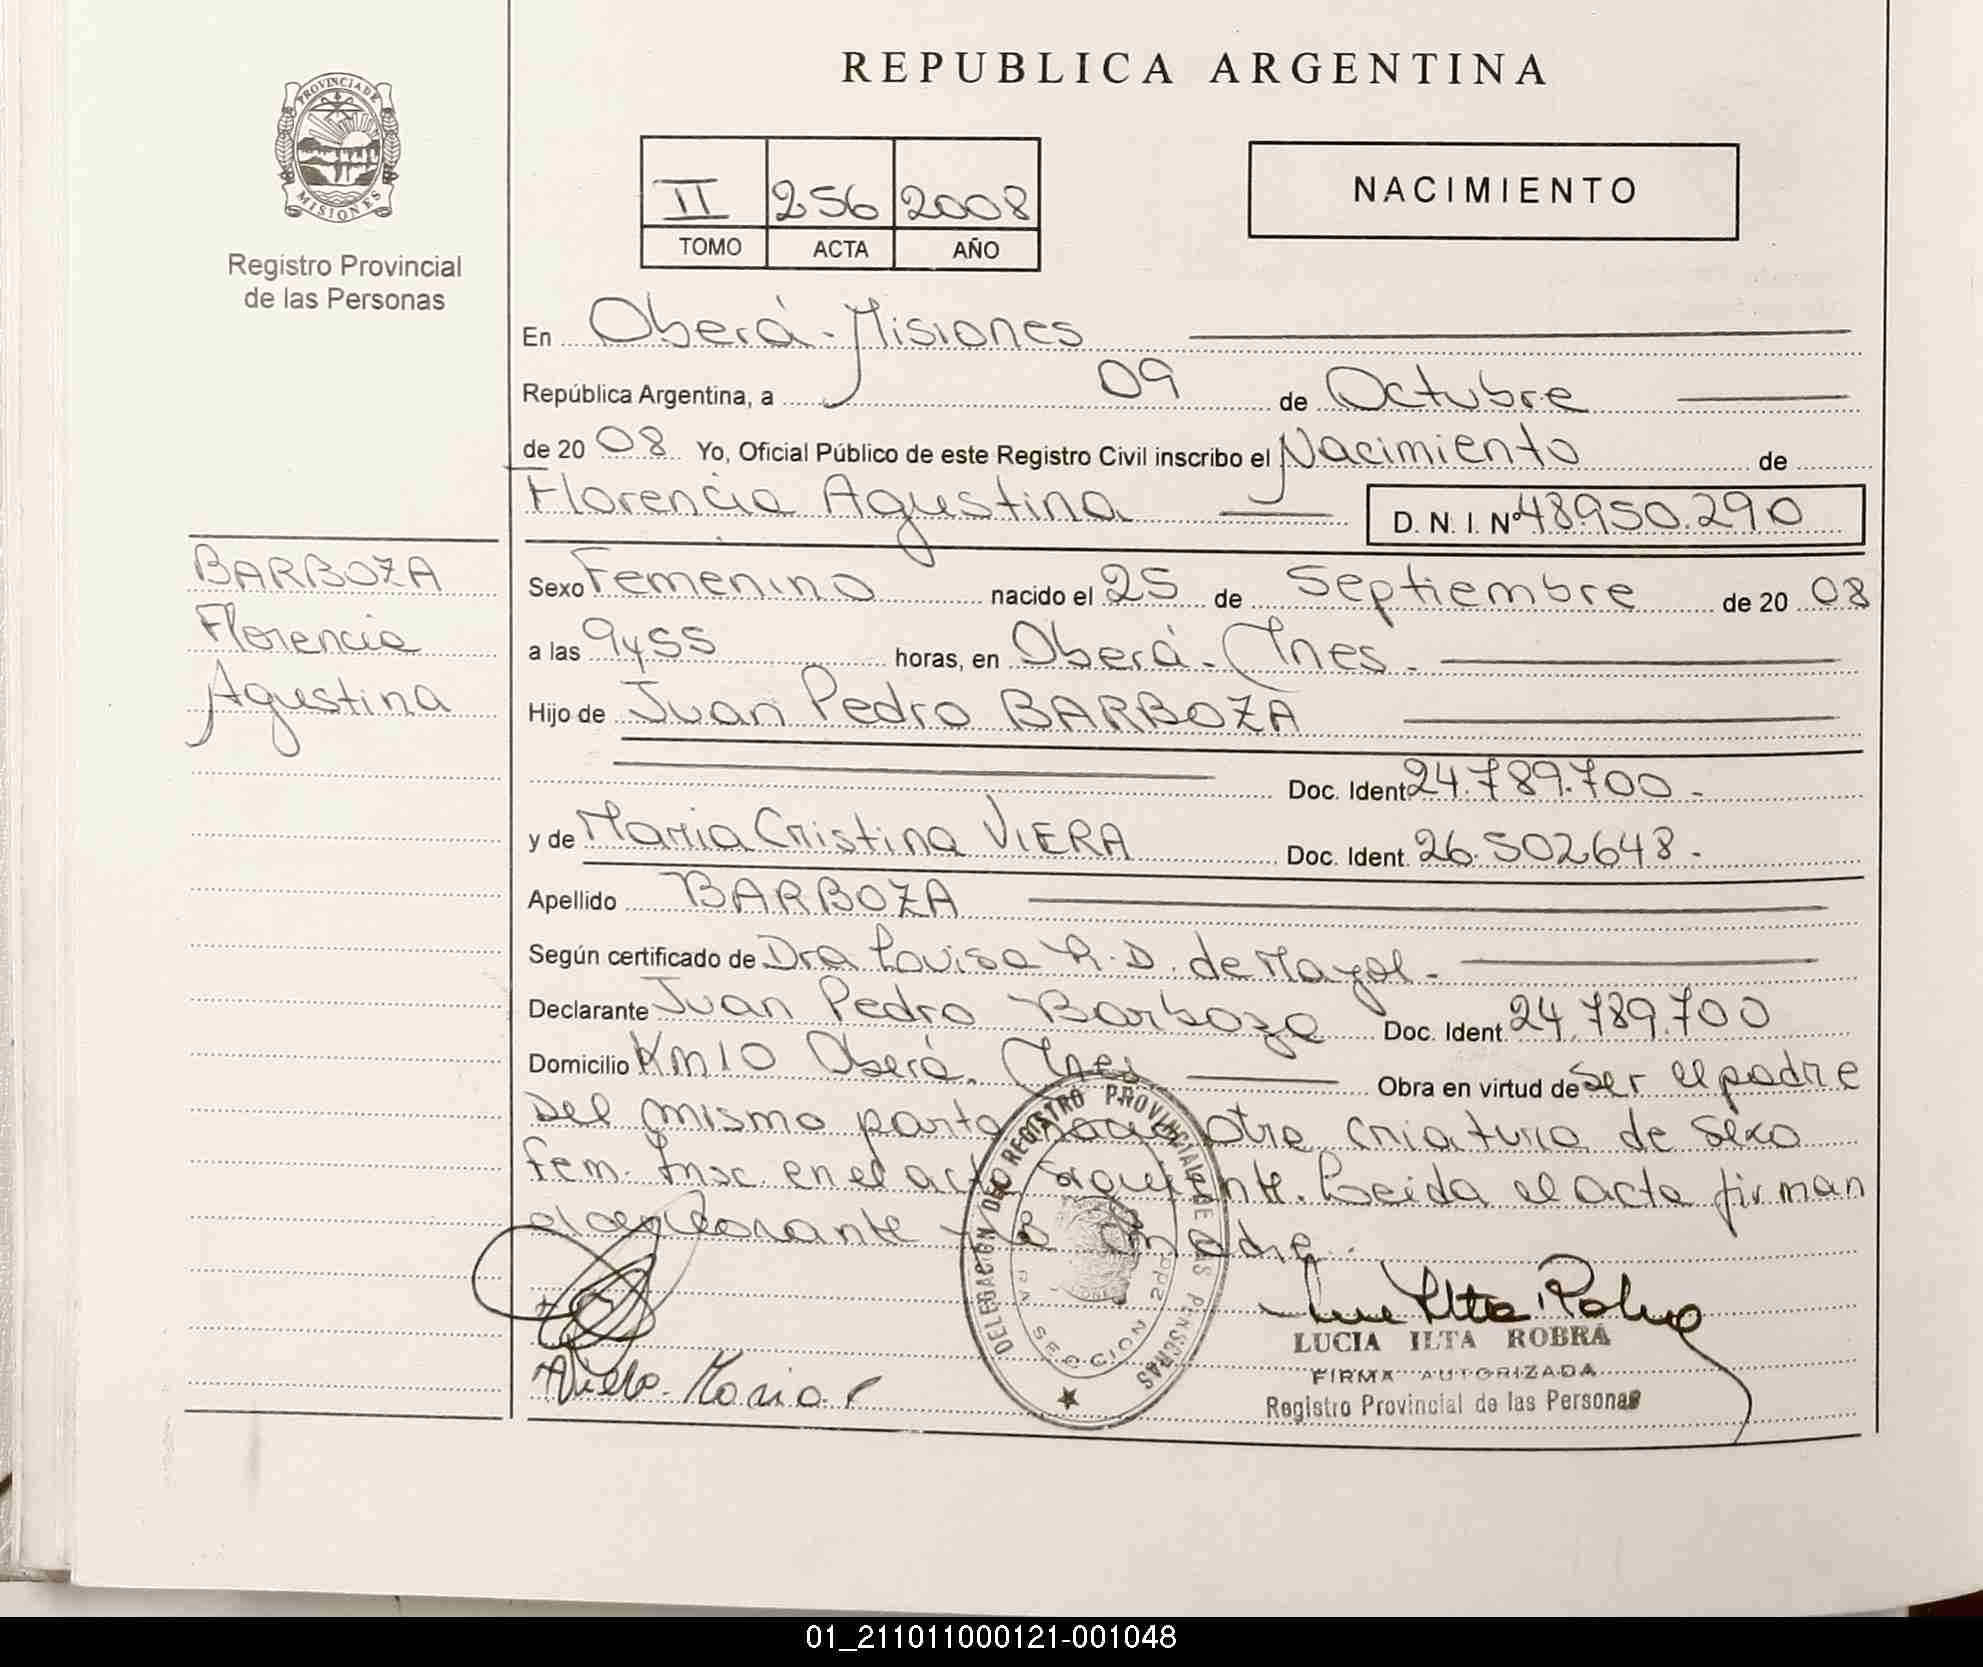 PROVINCIA DE
MISIONES
Registro Provincial
de las Personas
REPUBLICA ARGENTINA
II 256 2008
TOMO ACTA AÑO
NACIMIENTO
En Oberá - Misiones
República Argentina, a 09 de Octubre
de 20 08 Yo, Oficial Público de este Registro Civil inscribo el Nacimiento de
Florencia Agustina D. N. I. Nº 48.950.290
BARBOZA
Florencia
Agustina
Sexo Femenino nacido el 25 de Septiembre de 20 08
a las 9y55 horas, en Oberá - Mnes.
Hijo de Juan Pedro BARBOZA
Doc. Ident 24.789.700.-
y de Maria Cristina VIERA Doc. Ident. 26.502648.-
Apellido BARBOZA
Según certificado de Dra Louisa R. D. de Mayol.-
Declarante Juan Pedro Barboza Doc. Ident. 24.789.700
Domicilio Km10 Oberá. Mnes Obra en virtud de ser el padre
Del mismo parto nació otra criatura de sexo
fem. Insc. en el acta siguiente. Leida el acta firman
declarante y la madre.
DELEGACION DEL REGISTRO PROVINCIAL DE LAS PERSONAS
RA SECCION 2da
Viera Maria C
LUCIA ILTA ROBRA
FIRMA AUTORIZADA
Registro Provincial de las Personas
01_211011000121-001048